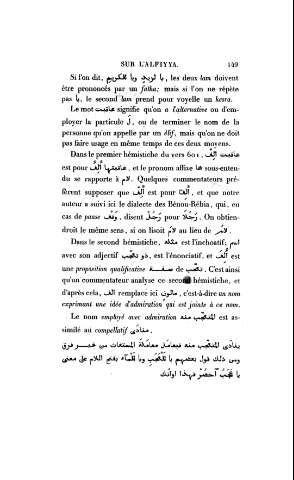 SUR L'ALFIYYA. ١٤٩
Si l'on dit, يا لَزيدٍ ويا لَلكريمِ, les deux lam doivent
être prononcés par un fatha; mais si l'on ne répète
pas يا, le second lam prend pour voyelle un kesra.
Le mot عاقبت signifie qu'on a l'alternative ou d'em-
ployer la particule لَ, ou de terminer le nom de la
personne qu'on appelle par un élif, mais qu'on ne doit
pas faire usage en même temps de ces deux moyens.
Dans le premier hémistiche du vers 601, عاقبت أَلِفْ
est pour عاقبتها أَلِفٌ, et le pronom affixe ها sous-enten-
du se rapporte à لام. Quelques commentateurs pré-
fèrent supposer que أَلِفْ est pour أَلِفًا, et que notre
auteur a suivi ici le dialecte des Bénou-Rébia, qui, en
cas de pause وَقْف, disent رَجُلْ pour رَجُلًا. On obtien-
droit le même sens, si on lisoit لامَ au lieu de لامُ.
Dans le second hémistiche, مثله est l'inchoatif; اسم
avec son adjectif ذو تعجّب, est l'énonciatif, et أُلِف est
une proposition qualificative صفة de تعجّب. C'est ainsi
qu'un commentateur analyse ce second hémistiche, et
d'après cela, الف remplace ici مألوف, c'est-à-dire un nom
exprimant une idée d'admiration qui est jointe à ce nom.
Le nom employé avec admiration المتعجّب منه est as-
similé au compellatif منادى.
ينادى المتعجّب منه فيعامل معاملة المستغاث من غير فرق
ومن ذلك قول بعضهم يا لَلْعَجَب ويا لَلْمآء بفتح اللام على معنى
يا عَجَبُ أحضُرْ فهذا اوانك